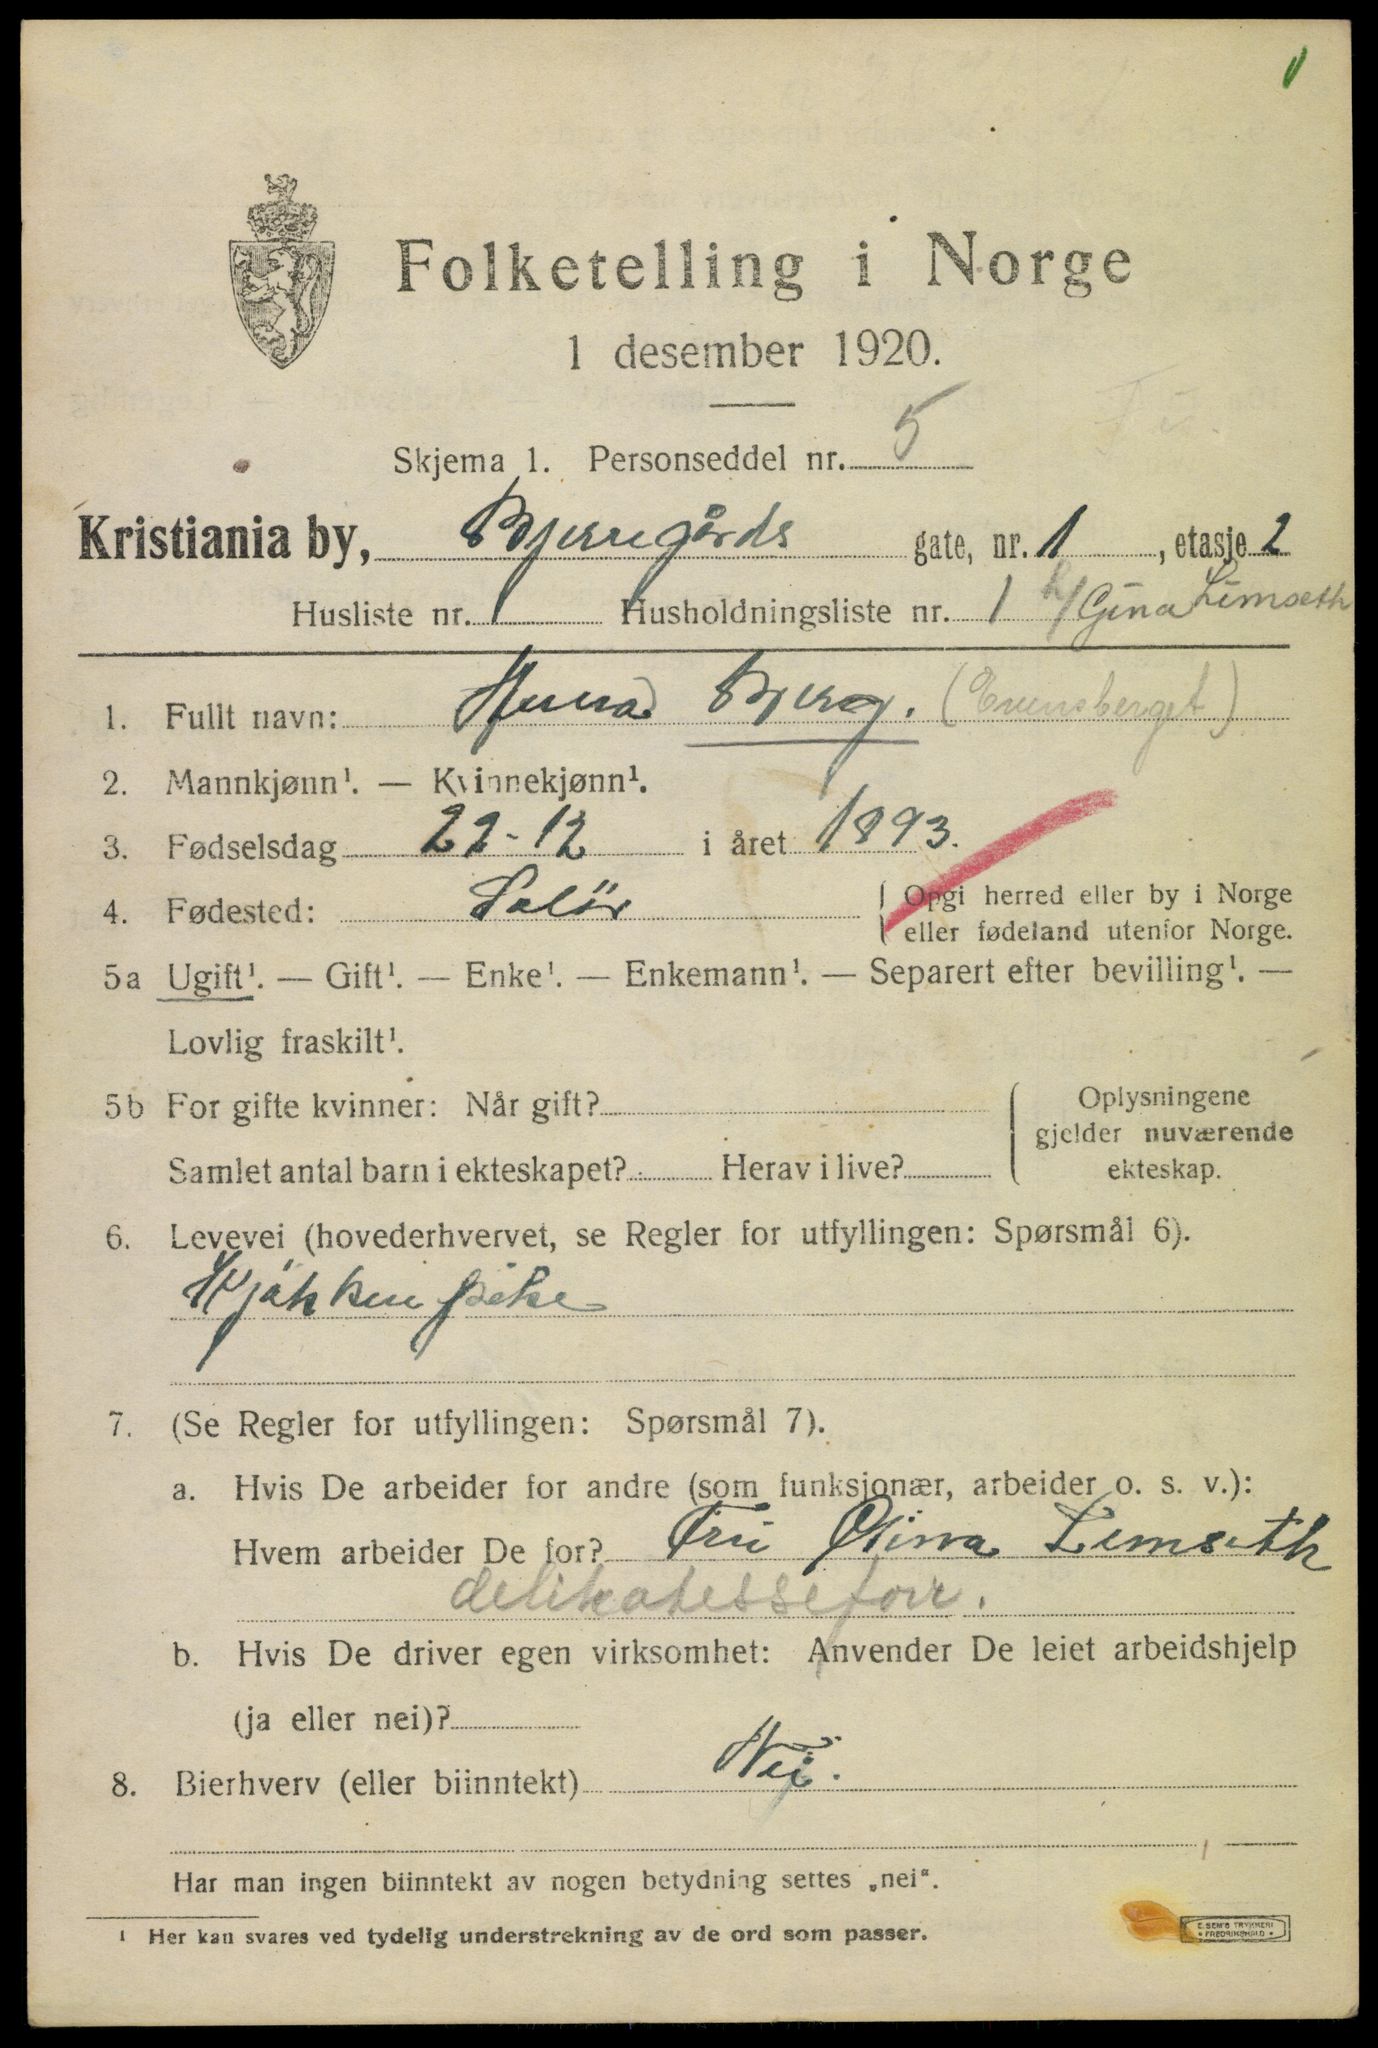 Folketelling i Norge
1 desember 1920.
Skjema 1. Personseddel nr. 5
Kristiania by, Bjerregårds gate, nr. 1, etasje 2
Husliste nr. 1 Husholdningsliste nr. 1 h/Gina Limseth
1. Fullt navn: Bjerg. (Evensberget)
2. Mannkjønn¹. — Kvinnekjønn¹.
3. Fødselsdag 22-12 i året 1893.
4. Fødested: Solör { Opgi herred eller by i Norge
eller fødeland utenfor Norge.
5a Ugift¹. — Gift¹. — Enke¹. — Enkemann¹. — Separert efter bevilling¹. —
Lovlig fraskilt¹.
5b For gifte kvinner: Når gift? { Oplysningene
gjelder nuværende
Samlet antal barn i ekteskapet? Herav i live? ekteskap.
6. Levevei (hovederhvervet, se Regler for utfyllingen: Spørsmål 6).
Kjökkenpike
7. (Se Regler for utfyllingen: Spørsmål 7).
a. Hvis De arbeider for andre (som funksjonær, arbeider o. s. v.):
Hvem arbeider De for? Fru Limseth
delikatesseforr.
b. Hvis De driver egen virksomhet: Anvender De leiet arbeidshjelp
(ja eller nei)?
8. Bierhverv (eller biinntekt) Nej.
Har man ingen biinntekt av nogen betydning settes „nei“.
¹ Her kan svares ved tydelig understrekning av de ord som passer.
E. SEM'S TRYKKERI
• FREDRIKSHALD •